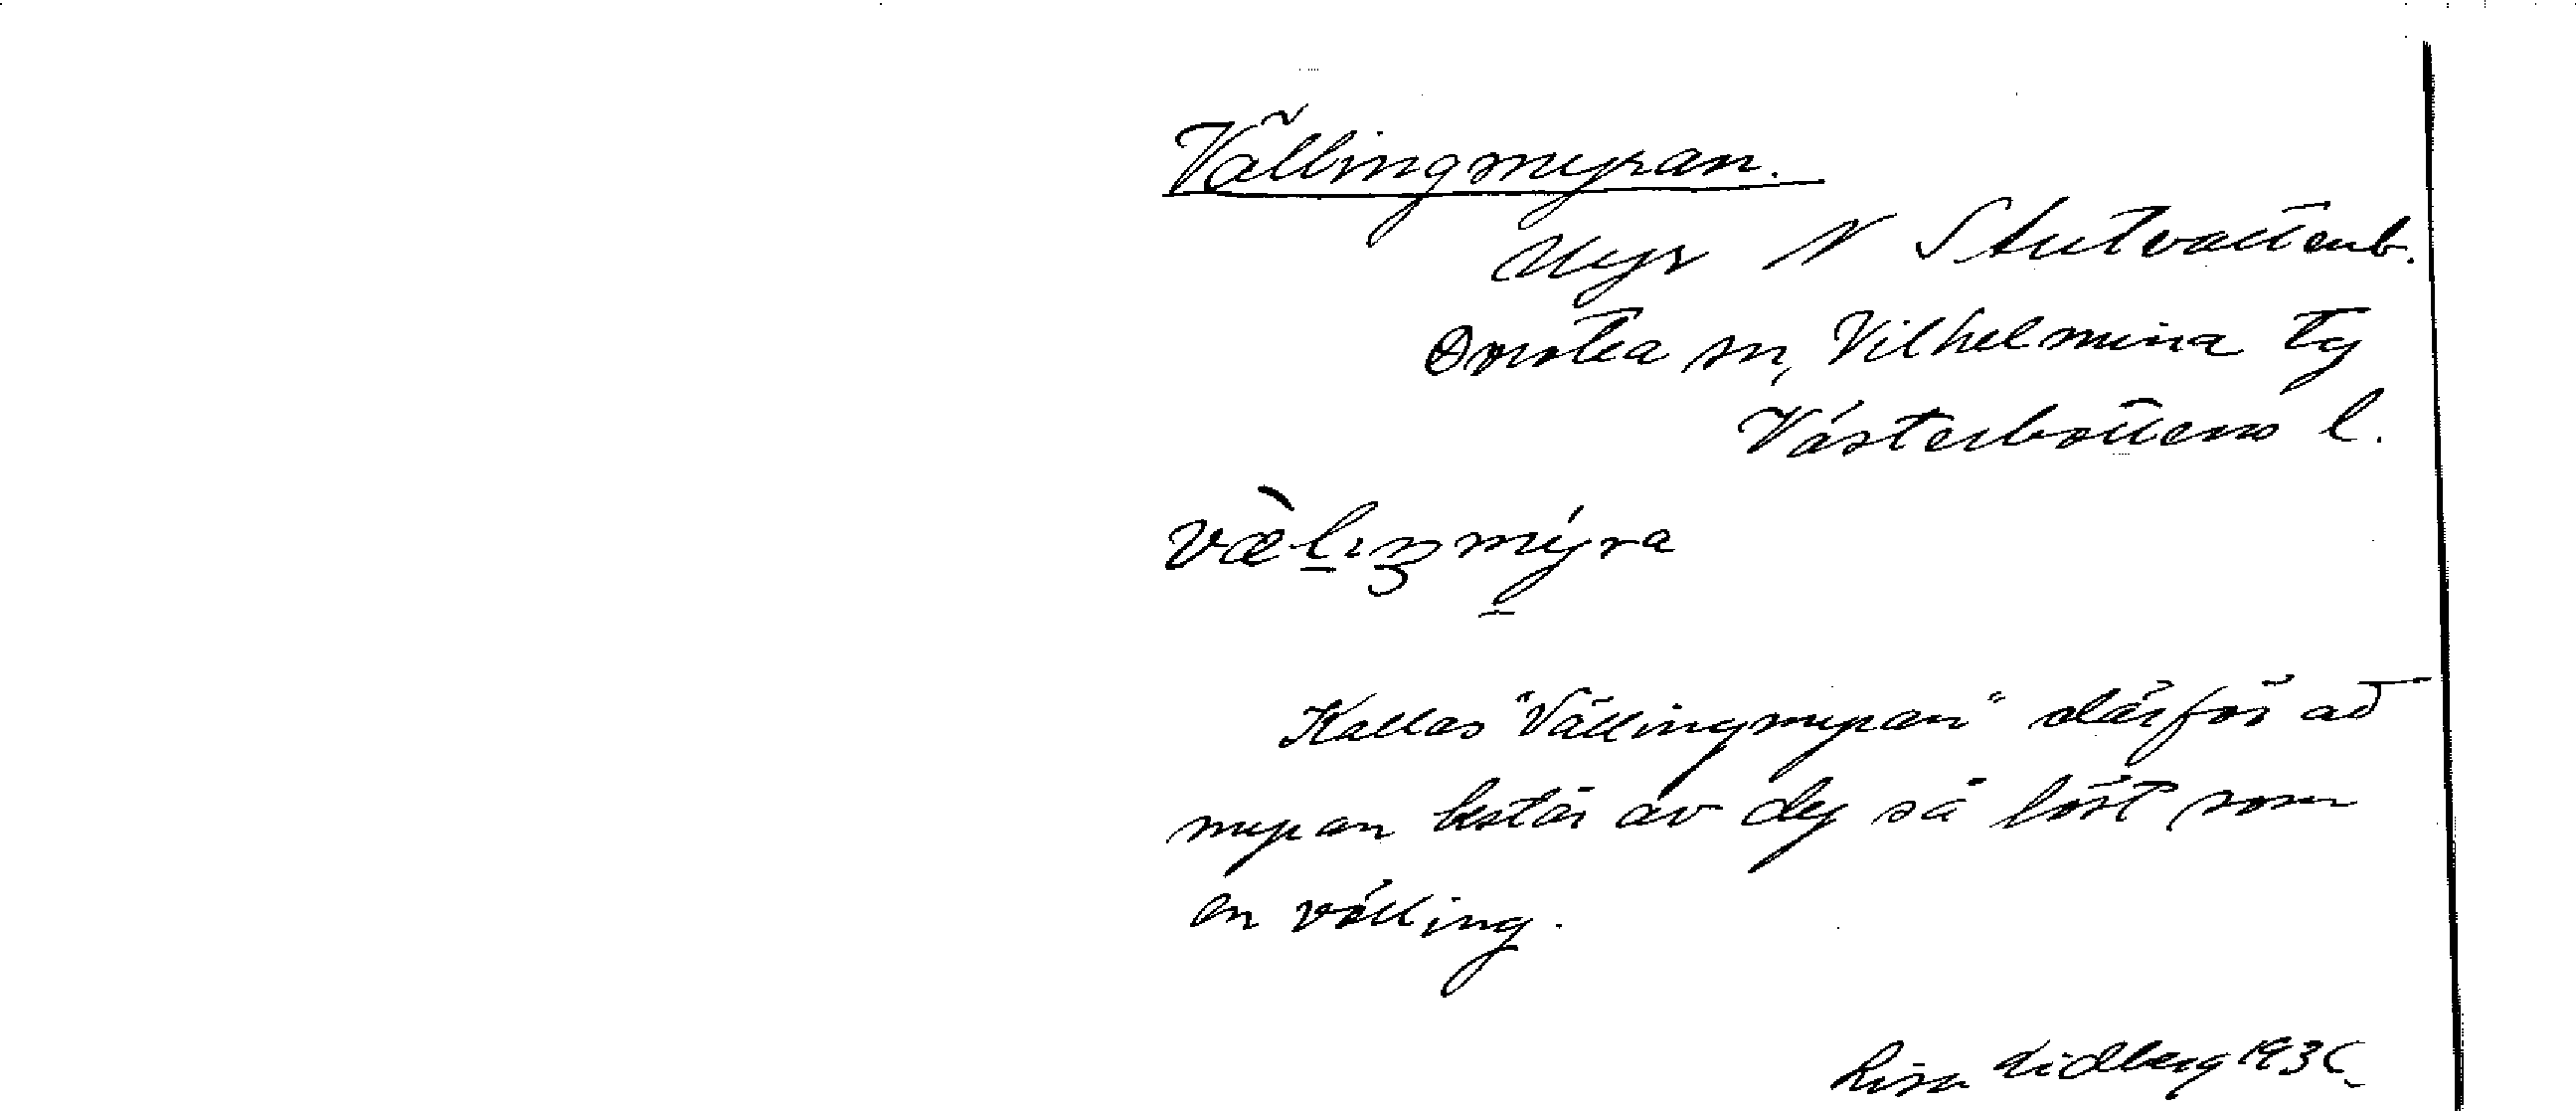 Vällingmyran.
Myr N Stutvattenb.
Dorotea sn, Vilhelmina tg
Västerbottens l.
væ̀lıŋmýra
Kallas "Vällingmyran" därför att
myran består av dy så löst som
en välling.
Lisa Lidberg